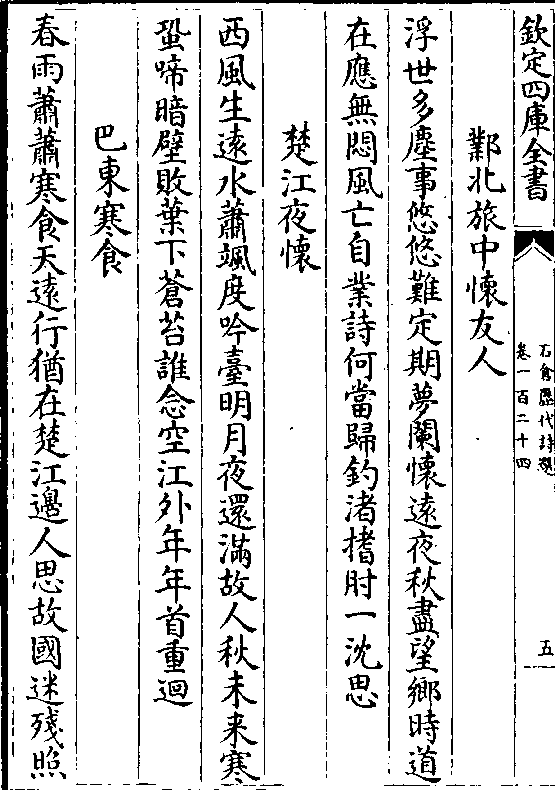 欽定四庫全書
石倉歷代詩選
卷一百二十四
五
鄴北旅中懷友人
浮世多塵事悠悠難定期夢闌懷遠夜秋盡望鄉時道
在應無悶風亡自業詩何當歸釣渚搘肘一沈思
楚江夜懷
西風生遠水蕭颯度吟臺明月夜還滿故人秋未来寒
蛩啼暗壁敗葉下蒼苔誰念空江外年年首重迴
巴東寒食
春雨蕭蕭寒食天遠行猶在楚江邊人思故國迷殘照